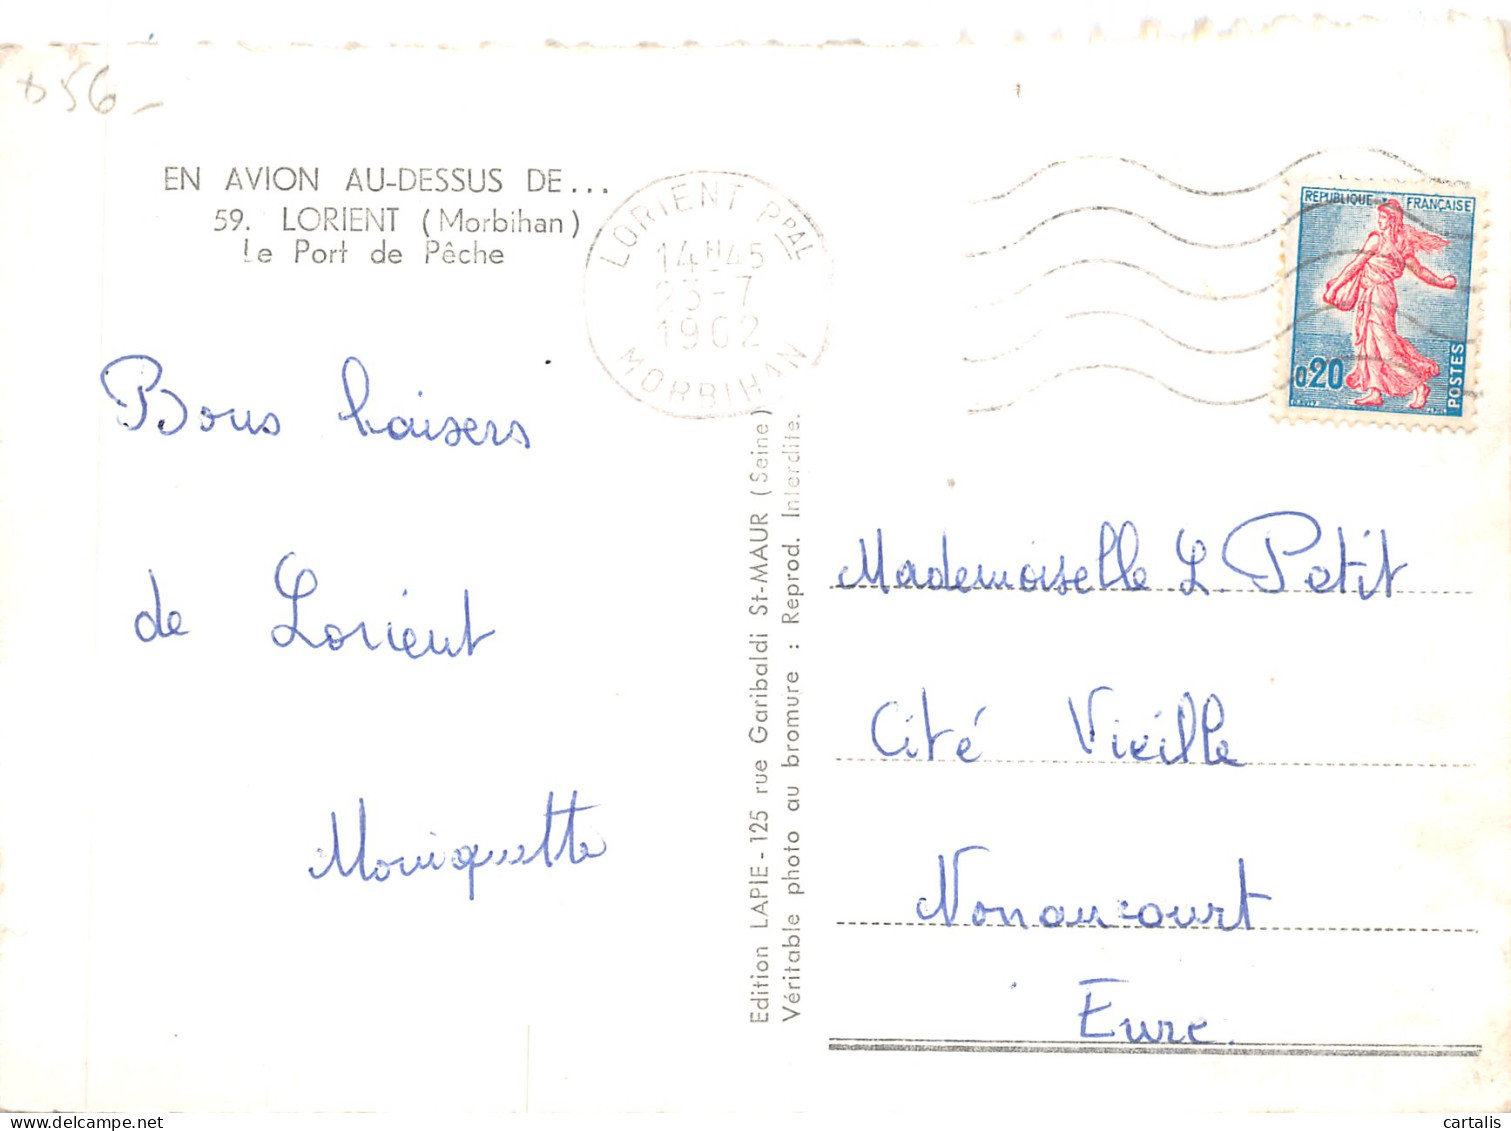 D56-
EN AVION AU-DESSUS DE...
59. LORIENT (Morbihan)
Le Port de Pêche
LORIENT PPAL
14H45
23-7
1962
MORBIHAN
REPUBLIQUE FRANÇAISE
0,20
POSTES
Bons baisers
de Lorient
Moniquette
Edition LAPIE - 125 rue Garibaldi St-MAUR (Seine)
Véritable photo au bromure : Reprod. Interdite.
Mademoiselle L. Petit
Cité Vieille
Nonancourt
Eure.
cartalis